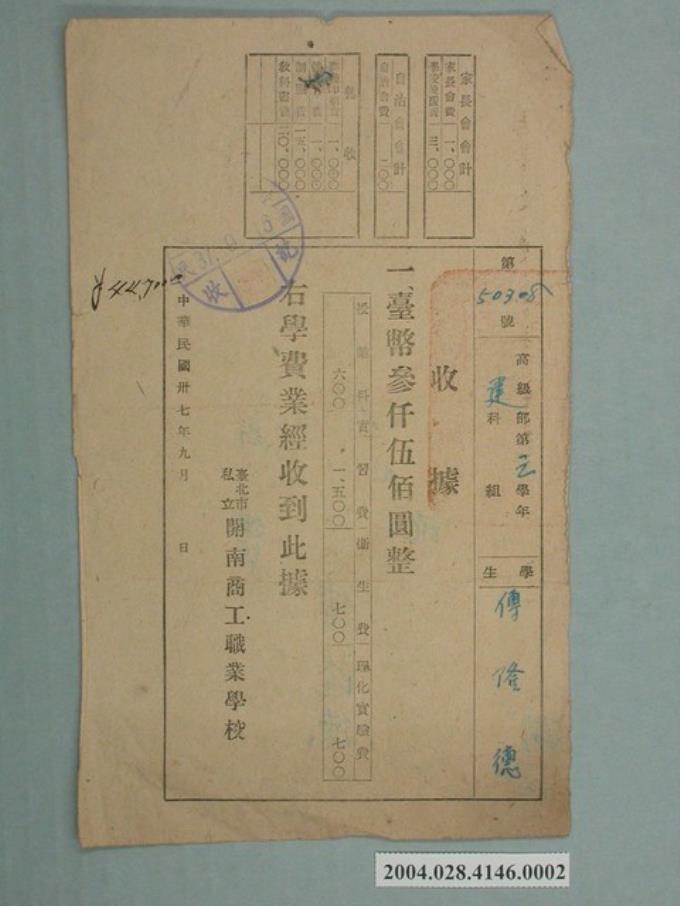 家長會會計
家長會費 一、〇〇〇
三、〇〇〇
自治會會計
自治會費 二〇〇
代收
一、〇〇〇
一、〇〇〇
一五、〇〇〇
教科書費 二〇、〇〇〇
第50308號
高級部第三學年
建科 組
學生 傅隆德
收據
一、臺幣參仟伍佰圓整
授業料 六〇〇
實習費 一、五〇〇
衛生費 七〇〇
理化實驗費 七〇〇
右學費業經收到此據
臺北市
私立
開南商工職業學校
中華民國卅七年九月 日
民37.9
收
2004.028.4146.0002